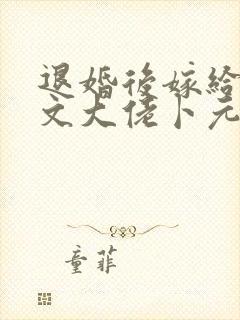 退婚後嫁給
文大佬卜元
童菲